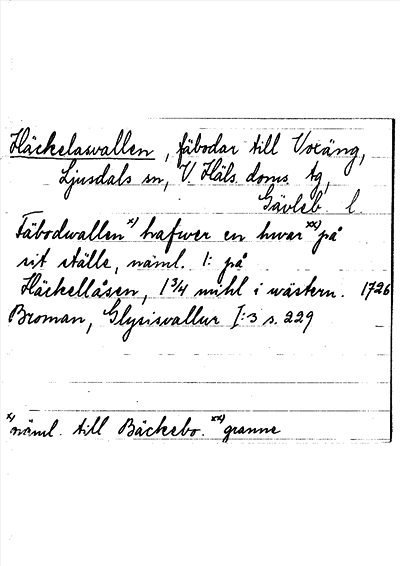 Häckelasvallen, fäbodar till Voxäng,
Ljusdals sn, V. Häls. doms. tg,
Gävleb. l.
Fäbodwallen x) hafwer en hwar xx) på
sit ställe, näml. 1: på
Häckellåsen, 1 3/4 mihl i wästern. 1726
Broman, Glysisvallur I:3 s. 229
x) näml. till Bäckebo. xx) granne